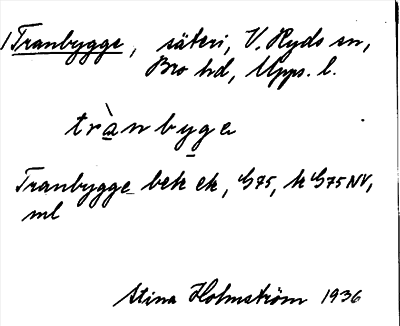 1 Tranbygge, säteri, V. Ryds sn,
Bro hd, Upps. l.
trànbyge
Tranbygge bek ek, G75, k G75NV,
ml
Stina Holmström 1936